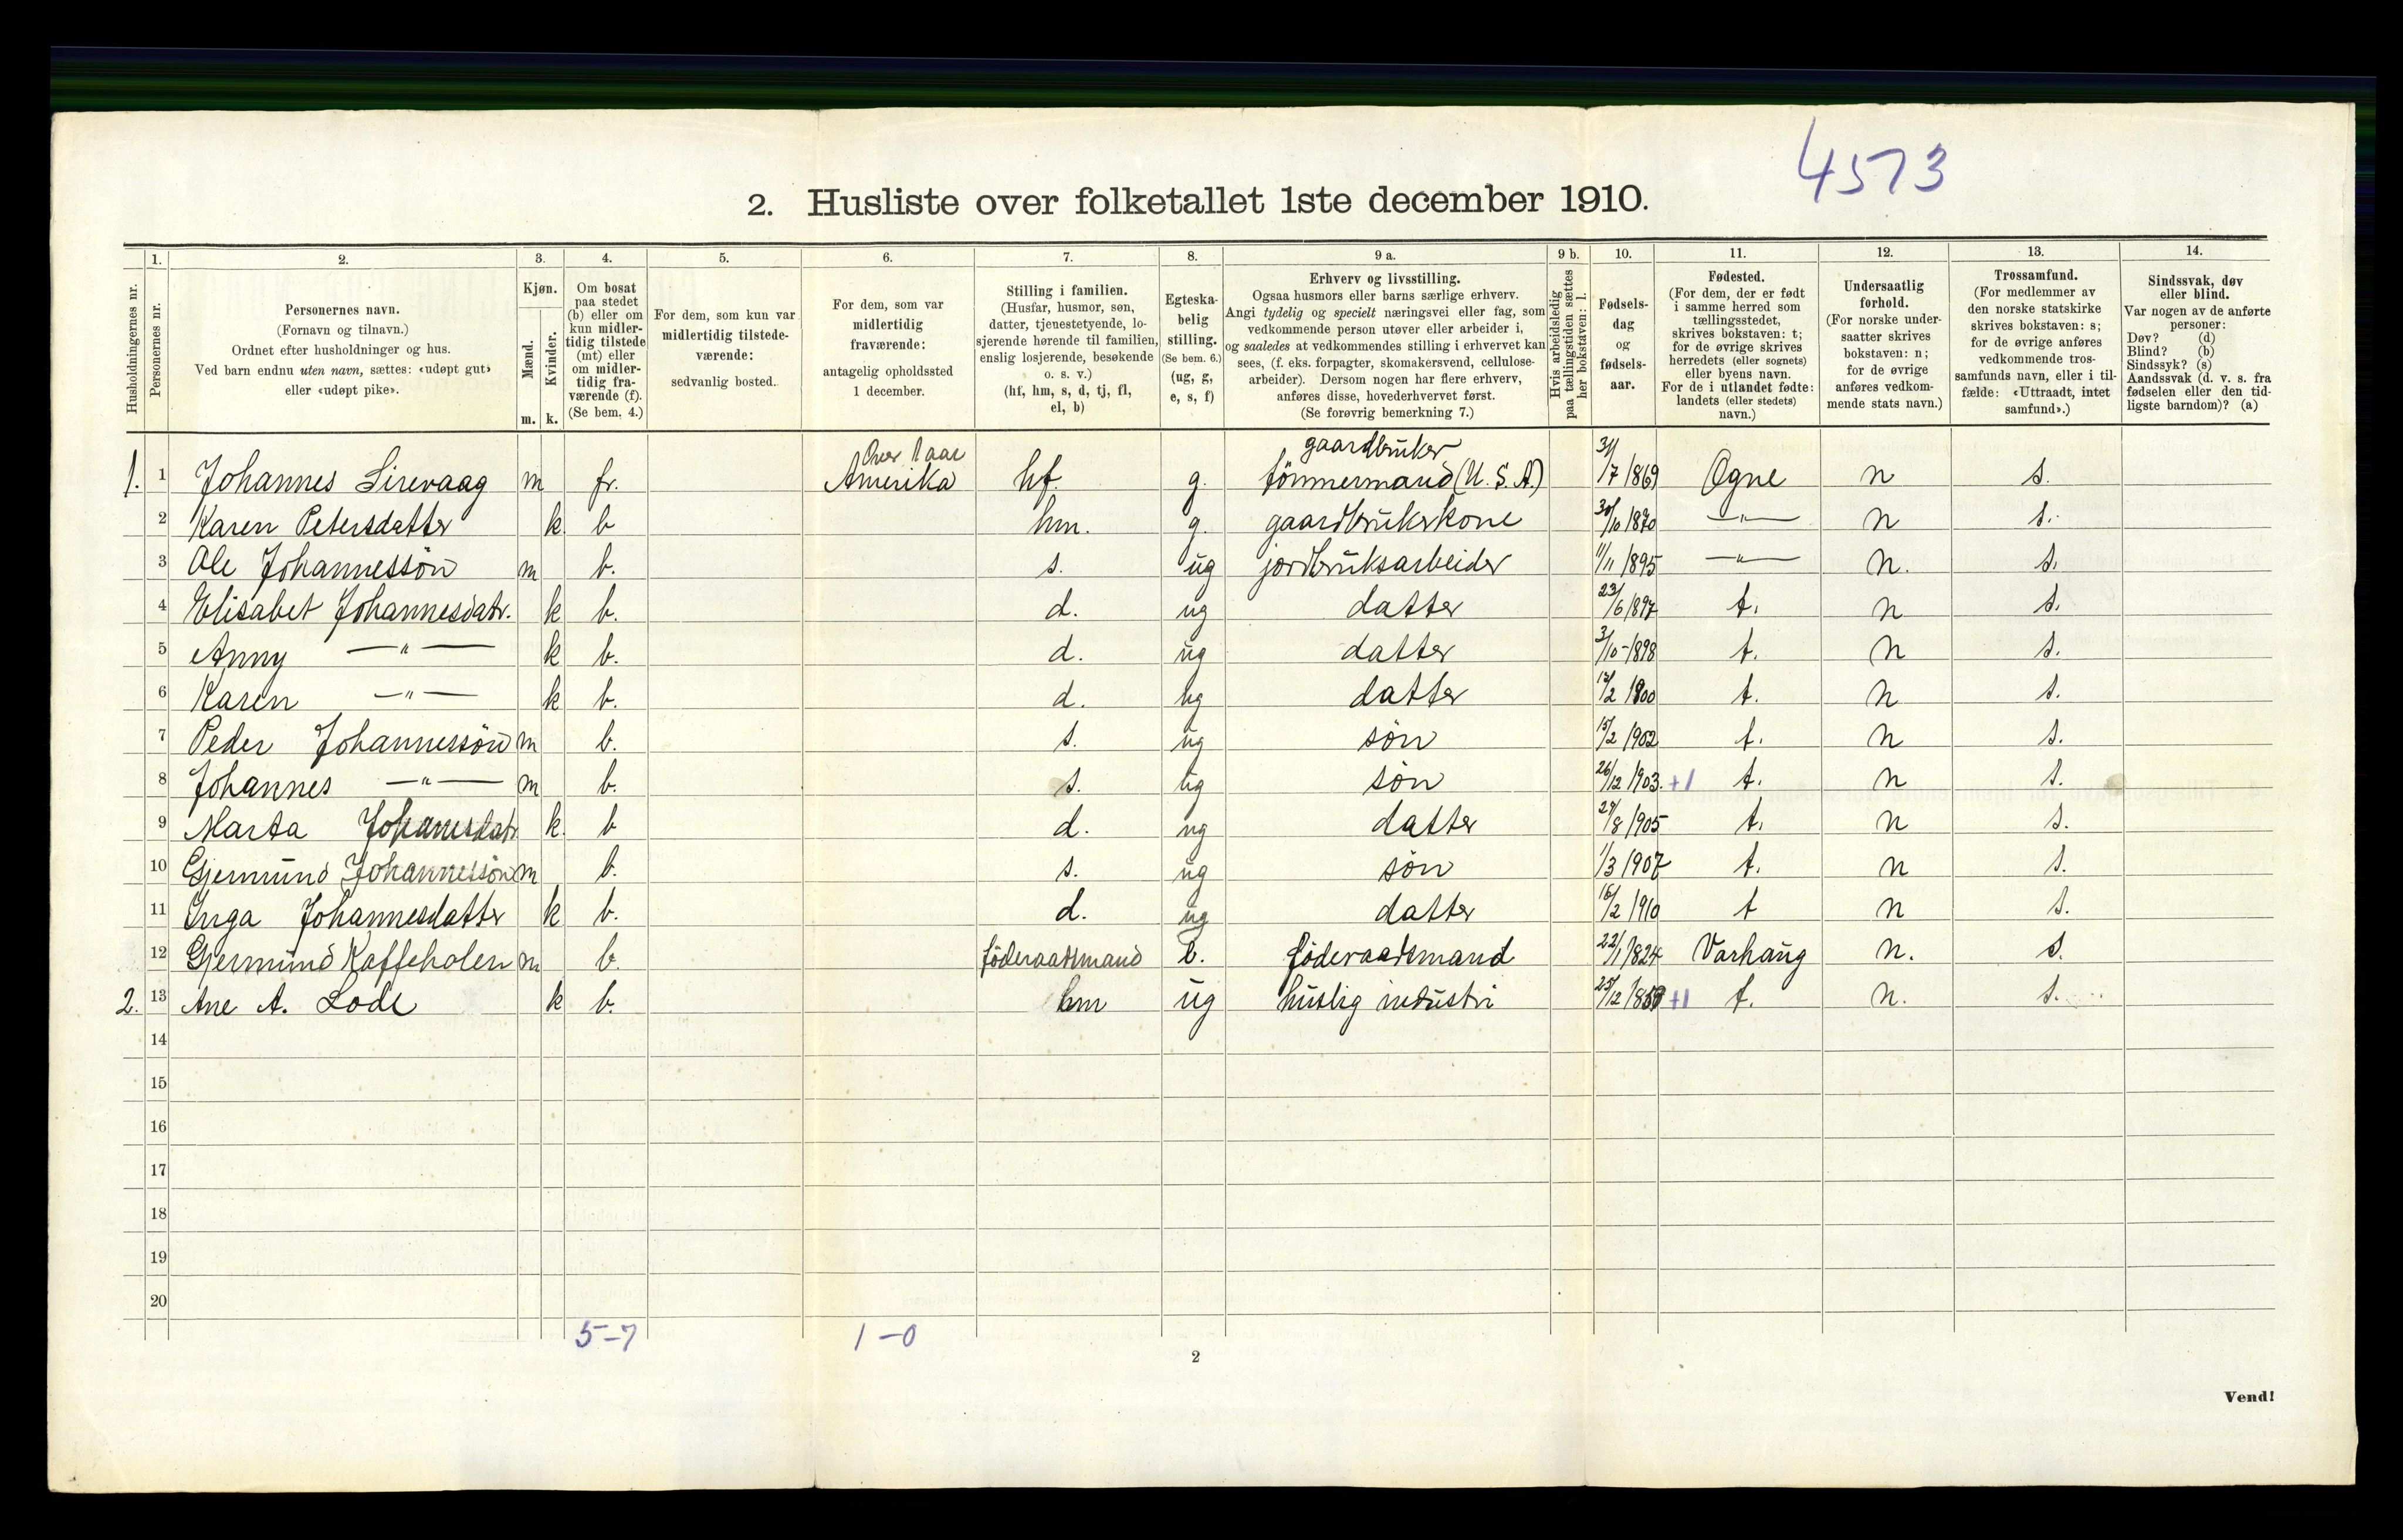 4573
2. Husliste over folketallet 1ste december 1910.
Husholdningernes nr.
1.
Personernes nr.
2.
Personernes navn.
(Fornavn og tilnavn.)
Ordnet efter husholdninger og hus.
Ved barn endnu uten navn, sættes: «udøpt gut»
eller «udøpt pike».
3.
Kjøn.
Mænd.
Kvinder.
m. k.
4.
Om bosat
paa stedet
(b) eller om
kun midler-
tidig tilstede
(mt) eller
om midler-
tidig fra-
værende (f).
(Se bem. 4.)
5.
For dem, som kun var
midlertidig tilstede-
værende:
sedvanlig bosted.
6.
For dem, som var
midlertidig
fraværende:
antagelig opholdssted
1 december.
7.
Stilling i familien.
(Husfar, husmor, søn,
datter, tjenestetyende, lo-
sjerende hørende til familien,
enslig losjerende, besøkende
o. s. v.)
(hf, hm, s, d, tj, fl,
el, b)
8.
Egteska-
belig
stilling.
(Se bem. 6.)
(ug, g,
e, s, f)
9 a.
Erhverv og livsstilling.
Ogsaa husmors eller barns særlige erhverv.
Angi tydelig og specielt næringsvei eller fag, som
vedkommende person utøver eller arbeider i,
og saaledes at vedkommendes stilling i erhvervet kan
sees, (f. eks. forpagter, skomakersvend, cellulose-
arbeider). Dersom nogen har flere erhverv,
anføres disse, hovederhvervet først.
(Se forøvrig bemerkning 7.)
9 b.
Hvis arbeidsledig
paa tællingstiden sættes
her bokstaven: l.
10.
Fødsels-
dag
og
fødsels-
aar.
11.
Fødested.
(For dem, der er født
i samme herred som
tællingsstedet,
skrives bokstaven: t;
for de øvrige skrives
herredets (eller sognets)
eller byens navn.
For de i utlandet fødte:
landets (eller stedets)
navn.)
12.
Undersaatlig
forhold.
(For norske under-
saatter skrives
bokstaven: n;
for de øvrige
anføres vedkom-
mende stats navn.)
13.
Trossamfund.
(For medlemmer av
den norske statskirke
skrives bokstaven: s;
for de øvrige anføres
vedkommende tros-
samfunds navn, eller i til-
fælde: «Uttraadt, intet
samfund».)
14.
Sindssvak, døv
eller blind.
Var nogen av de anførte
personer:
Døv? (d)
Blind? (b)
Sindssyk? (s)
Aandssvak (d. v. s. fra
fødselen eller den tid-
ligste barndom)? (a)
Over 1 aar gaardbruker
1. 1 Johannes Sirevaag m fr. Amerika hf. g. tömmermand (U.S.A.) 31/7 1869 Ogne n s.
2 Karen Petersdatter k b hm. g. gaardbrukskone 30/10 1870 —"— n s.
3 Ole Johannessön m b. s. ug jordbruksarbeider 11/11 1895 —"— n. s.
4 Elisabet Johannesdatr. k b. d. ug datter 23/6 1897 t. n s.
5 Anny —"— k b. d. ug datter 3/10-1898 t. n s.
6 Karen —"— k b. d. ug datter 1900 t. n s.
7 Peder Johannessön m b. s. ug sön 15/2 1902 t. n s.
8 Johannes —"— m b. s. ug sön 26/12 1903. +1 t. n s.
9 Marta Johanesdatr k. b d. ug datter 29/8 1905 t. n s.
10 Gjermund Johannessön m b. s. ug sön 1/3 1907 t. n s.
11 Inga Johannesdatter k b. d. ug datter 16/2 1910 t n s.
12 Gjermund Kaffeholen m b. föderaadsmand e. föderaadsmand 22/1 1824 Varhaug n. s.
2. 13 Ane A. Lode k b. hm ug huslig industri 25/12 +1 t. n. s.
14
15
16
17
18
19
20
5-7 1-0
2
Vend!